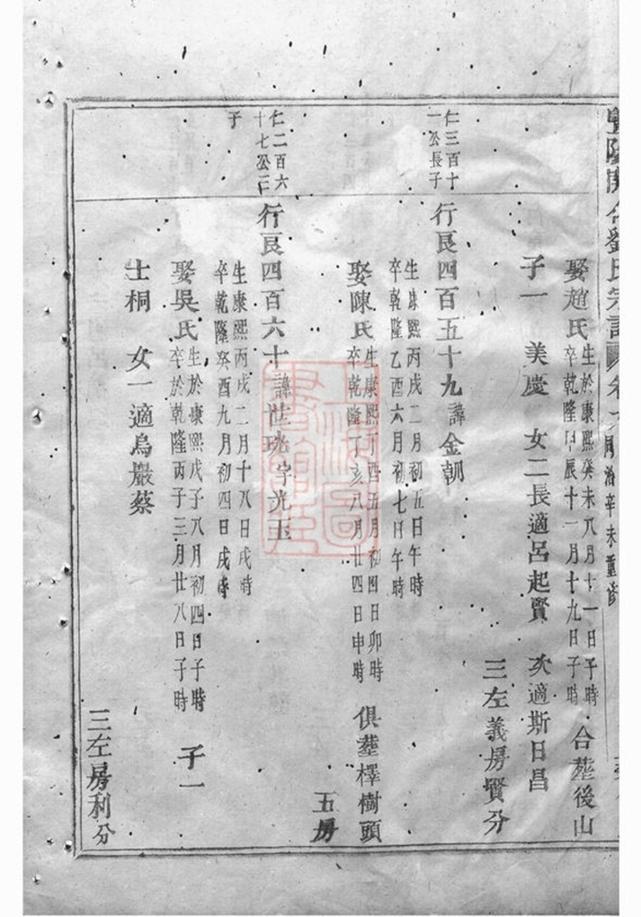 劉氏宗譜 同治辛未重修
娶趙氏 生於康熙癸未八月十一日子時 卒乾隆甲辰十一月十九日子時 合塟後山
子一 美慶 女二長適呂起賢 次適斯日昌
三左義房賢分
仁三百十一公長子
行良四百五十九諱金朝
生康熙丙戌二月初五日午時
卒乾隆乙酉六月初七日午時
娶陳氏 生康熙丁酉五月初四日卯時 卒乾隆丁亥八月廿四日申時 俱塟檡樹頭
五房
仁二百六十七公三子
行良四百六十諱世珖字光玉
生康熙丙戌二月十八日戌時
卒乾隆癸酉九月初四日戌時
娶吳氏 生於康熙戊子八月初四日子時 卒於乾隆丙子三月廿八日子時 子一
士桐 女一適烏巖蔡
三左房利分